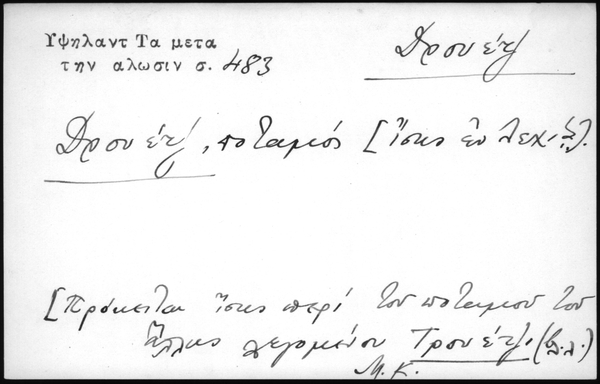 Υψηλαντ Τα μετα
την αλωσιν σ. 483
Δρουέτζ
Δρουέτζ, ποταμός [ἴσως ἐν Λεχ.
[Πρόκειται ἴσως περί τοῦ ποταμοῦ τοῦ
ἄλλως λεγομένου Τρουέτζ. (β.λ.)
Μ.Κ.